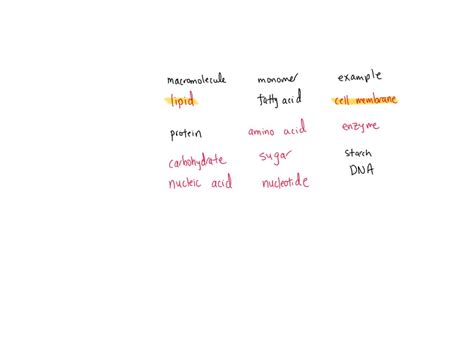 macromolecule monomer example
lipid fatty acid cell membrane
protein amino acid enzyme
carbohydrate sugar starch
nucleic acid nucleotide DNA